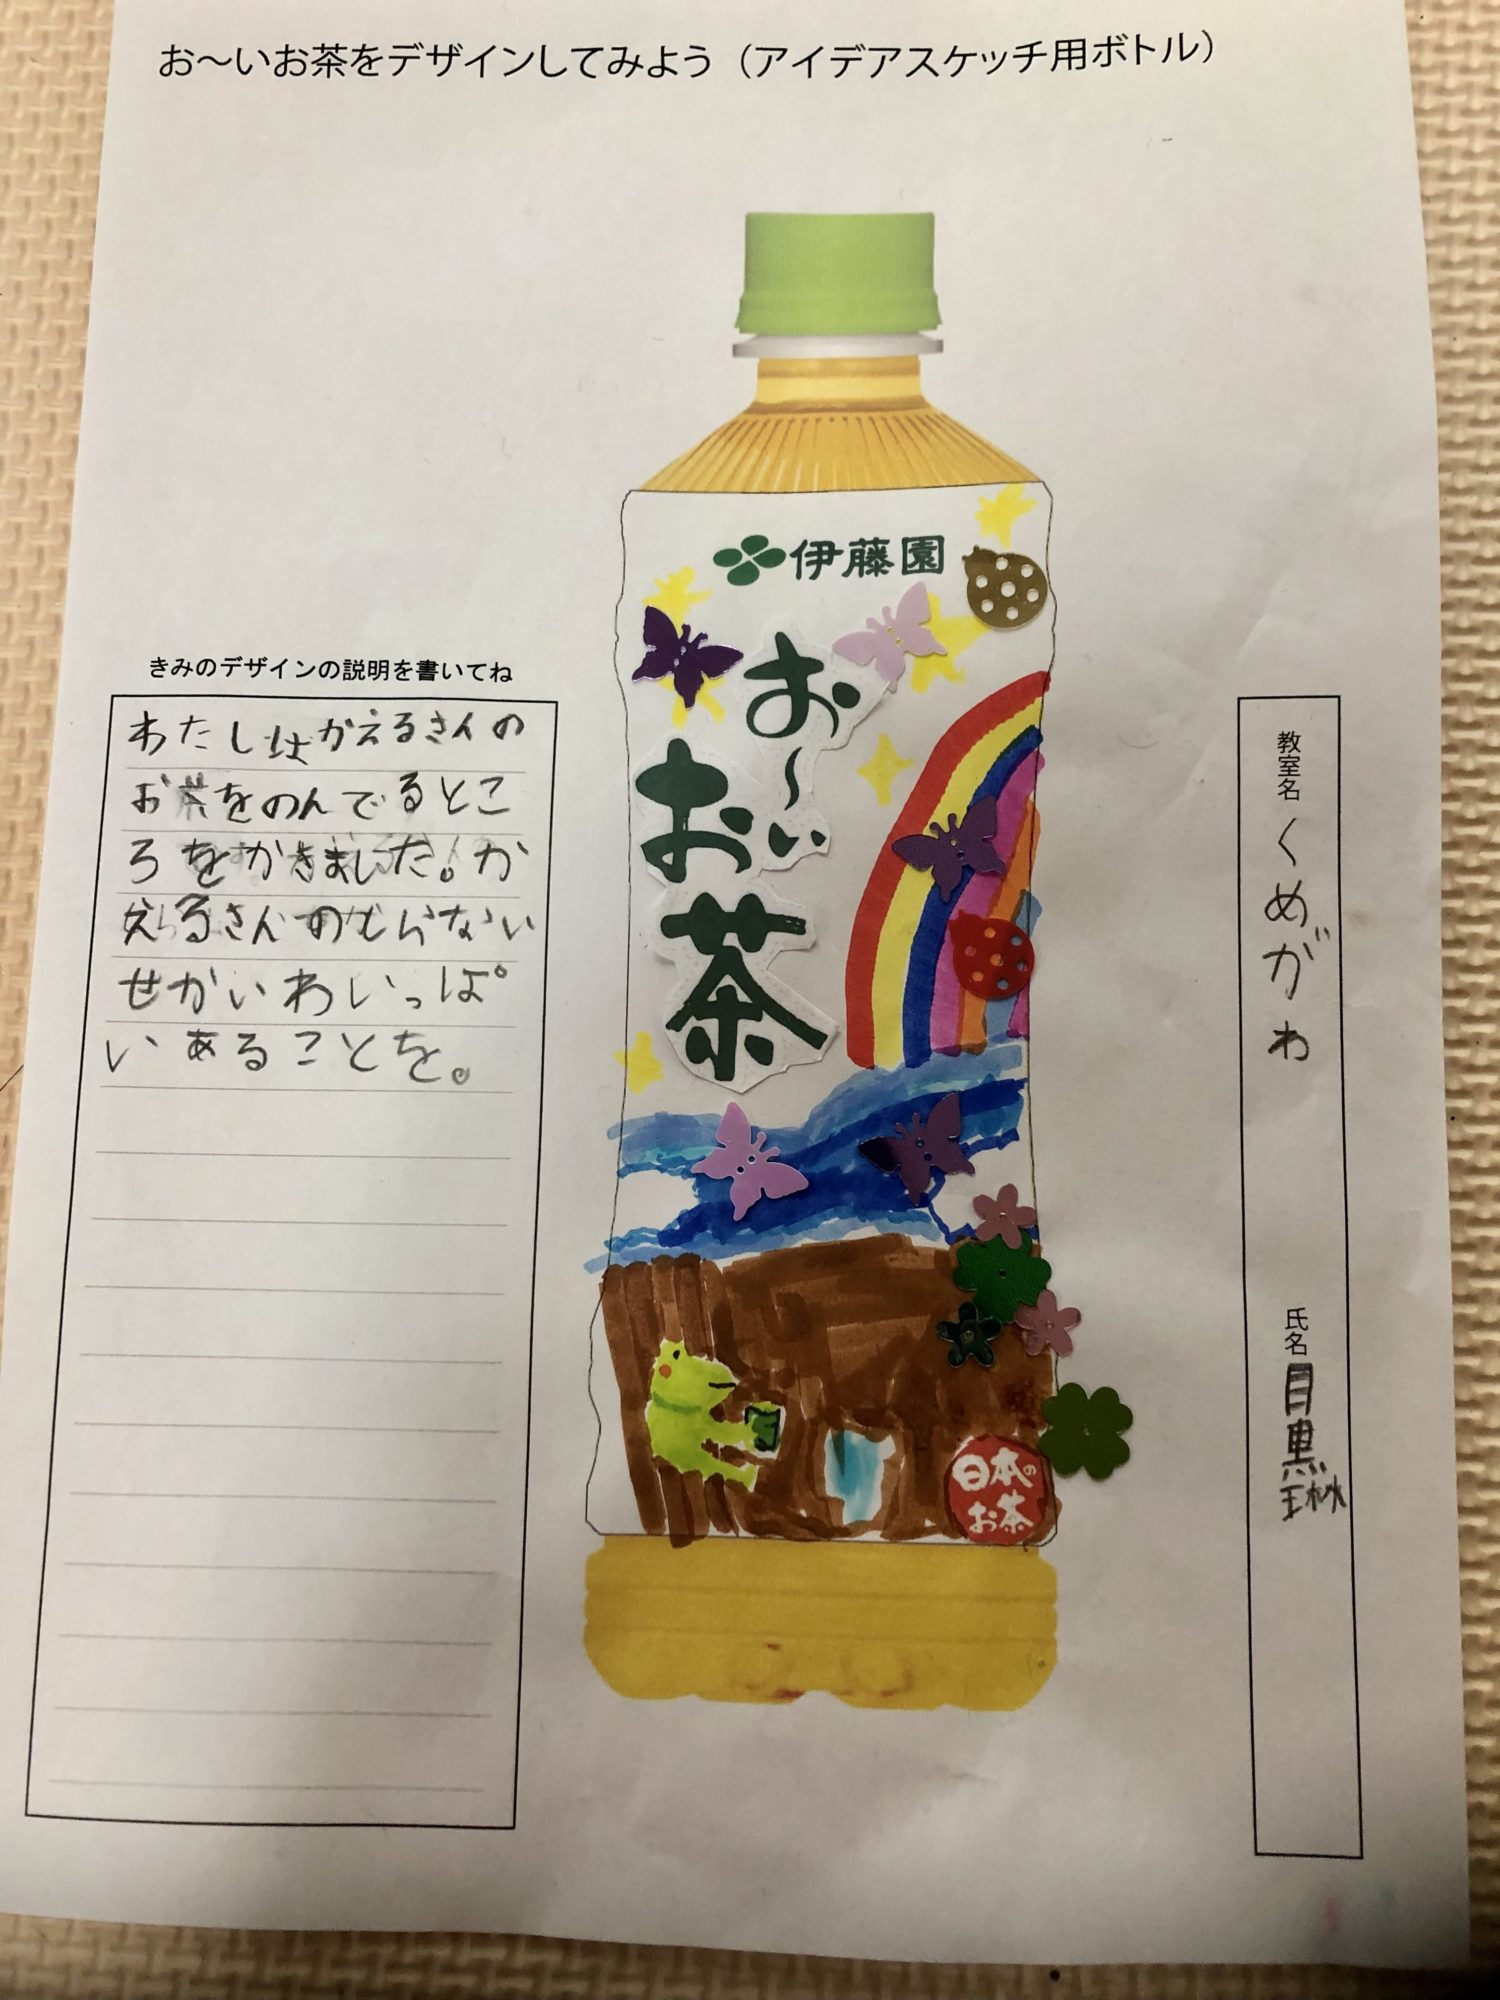 お～いお茶をデザインしてみよう（アイデアスケッチ用ボトル）
伊藤園
お～い
お茶
日本の
お茶
きみのデザインの説明を書いてね
わたしはかえるさんの
お茶をのんでるとこ
ろをかきました。か
えるさんのしらない
せかいわいっぱ
いあることを。
教室名 くめがわ
氏名 目黒